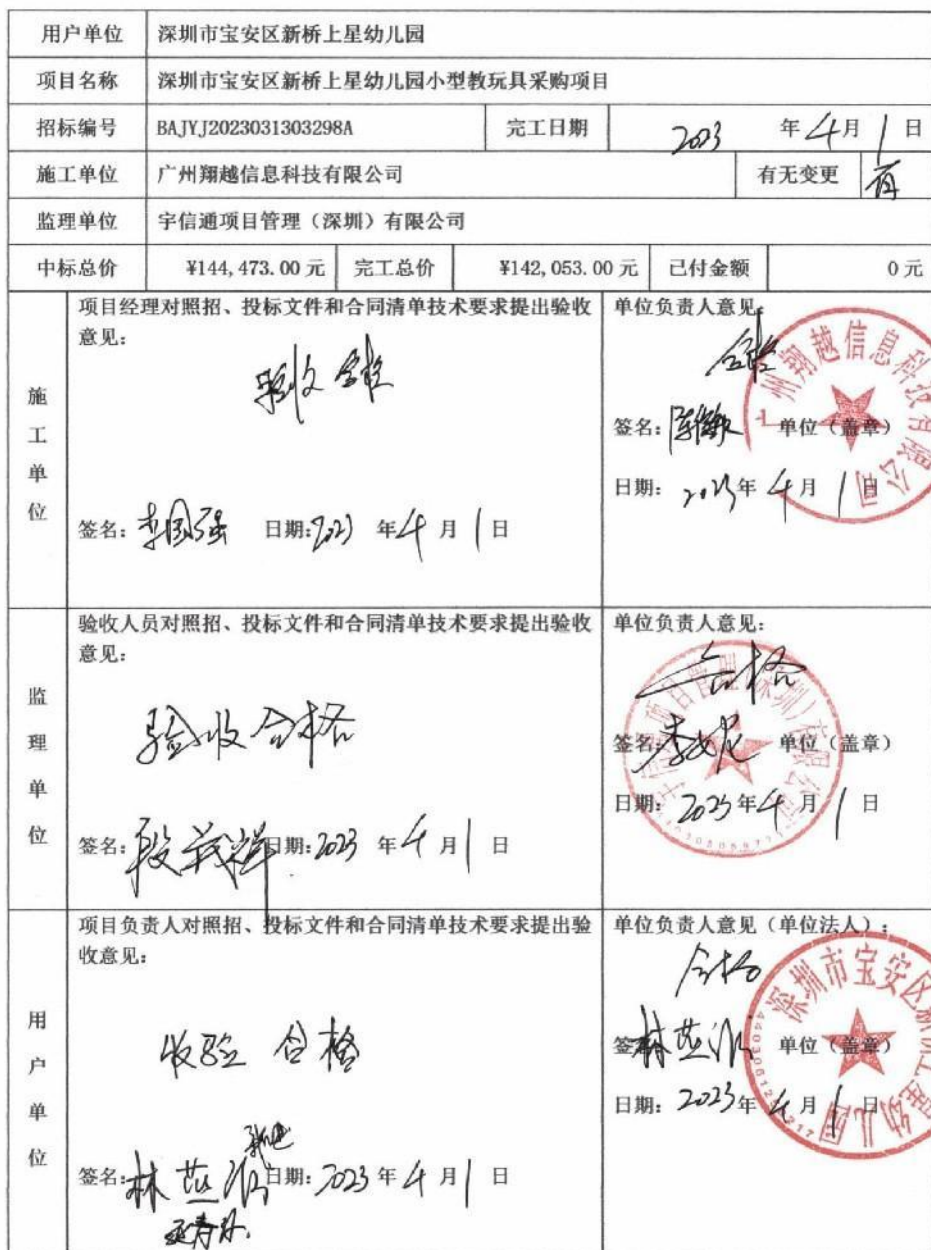 用户单位 深圳市宝安区新桥上星幼儿园
项目名称 深圳市宝安区新桥上星幼儿园小型教玩具采购项目
招标编号 BAJYJ2023031303298A 完工日期 2023 年 4 月 1 日
施工单位 广州翔越信息科技有限公司 有无变更 有
监理单位 宇信通项目管理（深圳）有限公司
中标总价 ¥144,473.00 元 完工总价 ¥142,053.00 元 已付金额 0 元
施工单位
项目经理对照招、投标文件和合同清单技术要求提出验收
意见：
验收合格
签名：李国强 日期：2023 年 4 月 1 日
单位负责人意见：
合格
签名： 单位（盖章）
日期：2023 年 4 月 1 日
广州翔越信息科技有限公司
监理单位
验收人员对照招、投标文件和合同清单技术要求提出验收
意见：
验收合格
签名：段 日期：2023 年 4 月 1 日
单位负责人意见：
合格
签名：李 单位（盖章）
日期：2023 年 4 月 1 日
项目管理（深圳）有限公司
用户单位
项目负责人对照招、投标文件和合同清单技术要求提出验
收意见：
收验 合格
签名：林 日期：2023 年 4 月 1 日
单位负责人意见（单位法人）：
合格
签名：林 单位（盖章）
日期：2023 年 4 月 1 日
深圳市宝安区新桥上星幼儿园